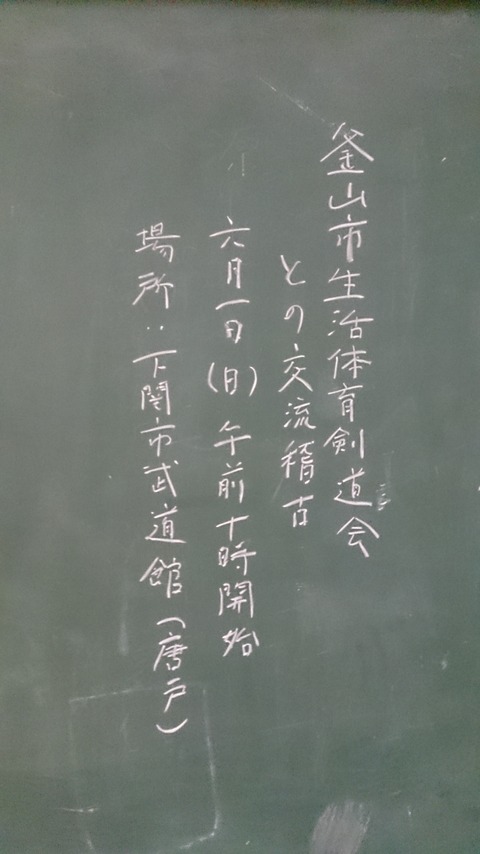 釜山市生活体育剣道会
との交流稽古
六月一日(日)午前十時開始
場所:下関市武道館(唐戸)